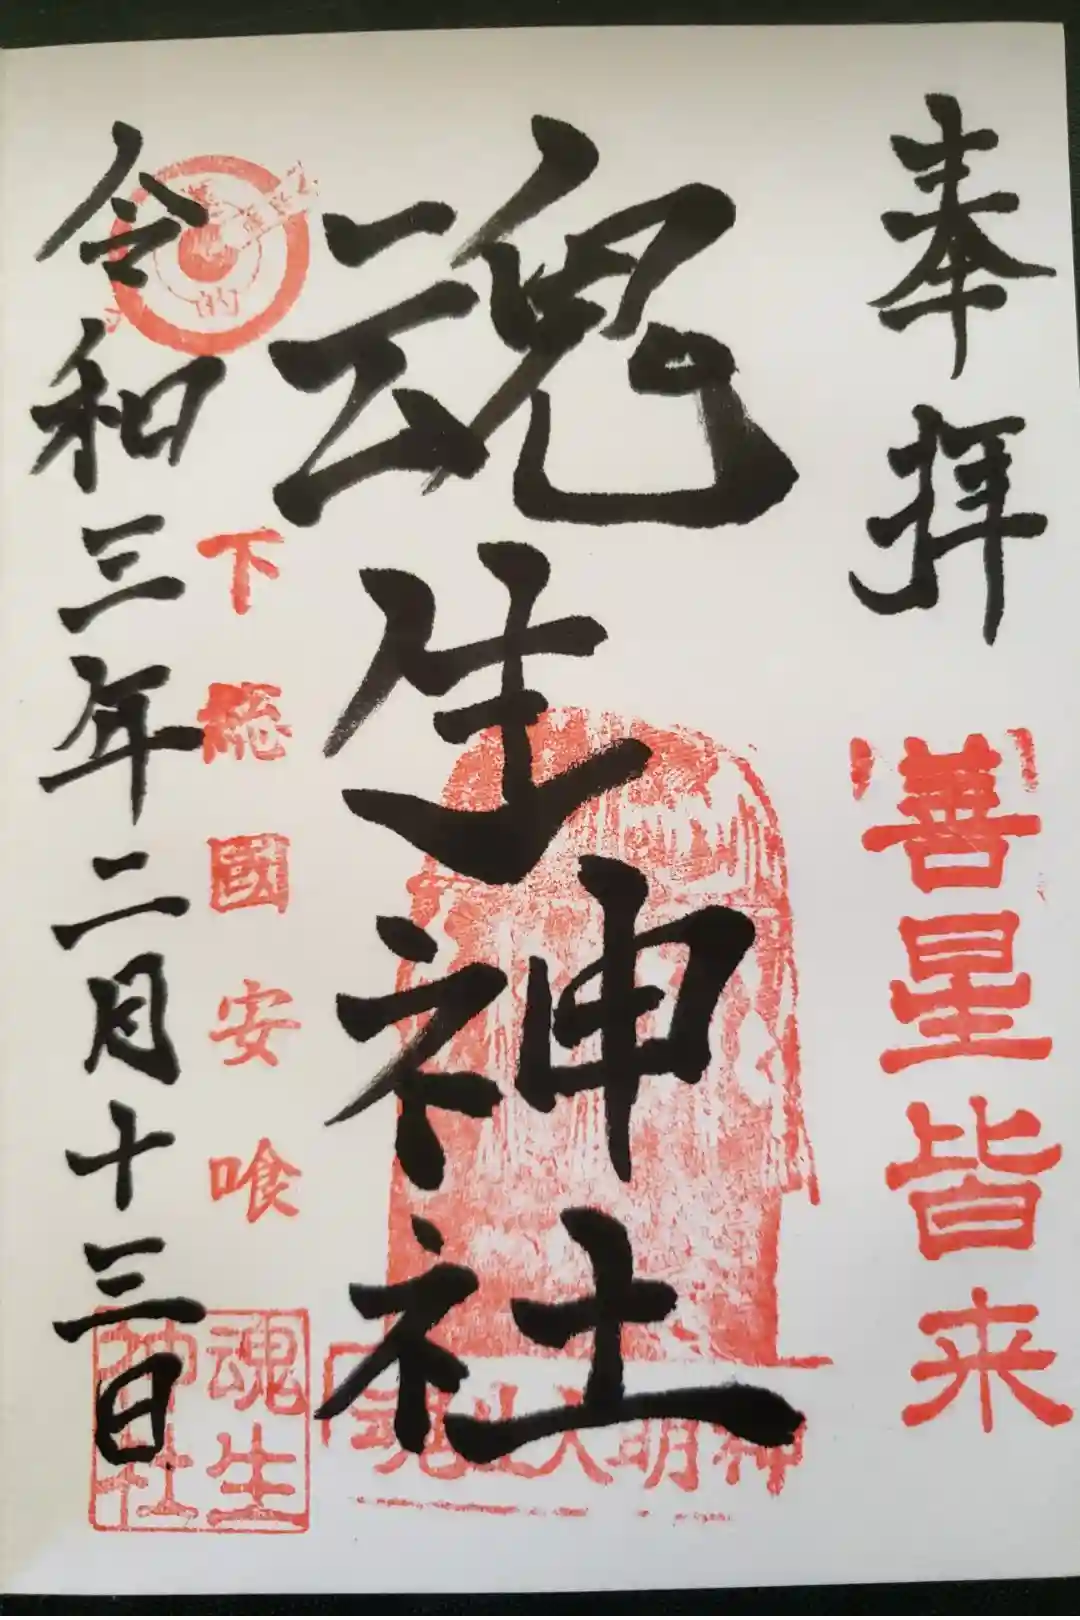 奉拝
善星皆来
魂生神社
魂生大明神
下総國安喰
令和三年二月十三日
的
魂生
神社